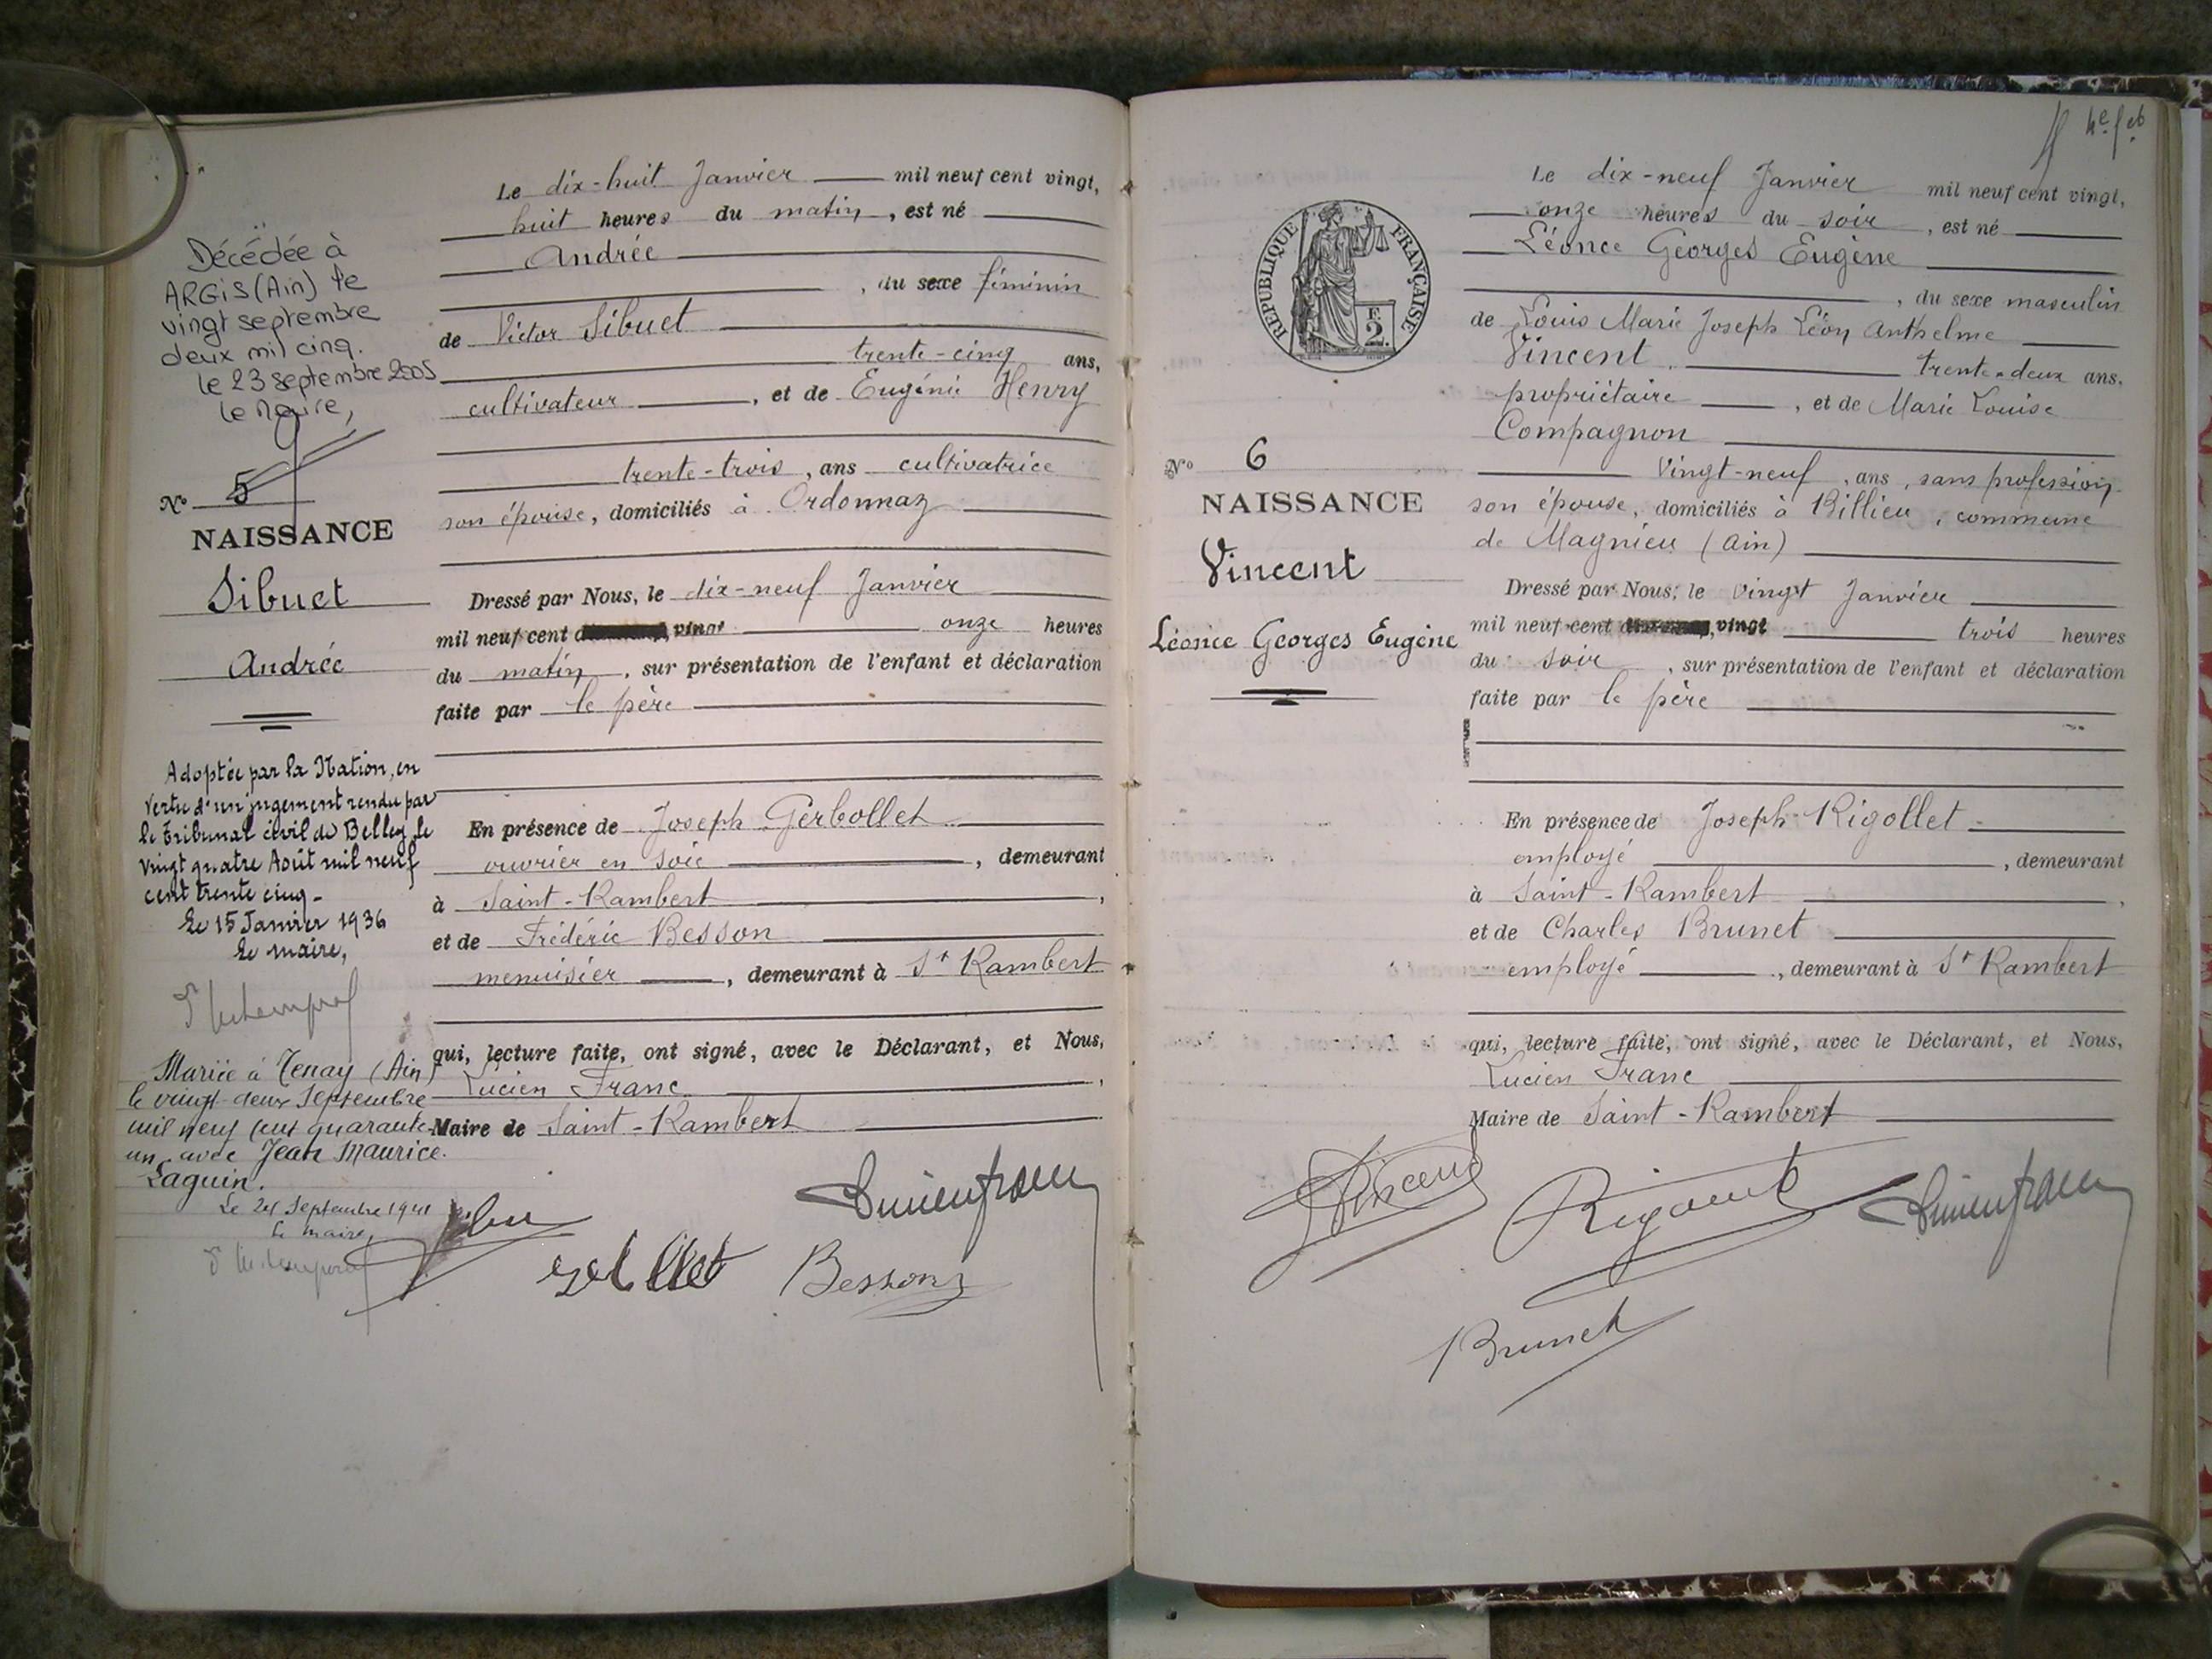 Décédée à
ARGIS (Ain) le
vingt septembre
deux mil cinq.
le 23 septembre 2005
le Maire,
N° 5
NAISSANCE
Sibuet
Andrée
Adoptée par la Nation, en
vertu d'un jugement rendu par
le Tribunal civil de Belley, le
vingt quatre Août mil neuf
cent trente cinq -
Le 15 Janvier 1936
Le maire,
Mariée à Tenay (Ain)
le vingt-deux Septembre
mil neuf cent quarante-
un avec Jean Maurice
Laguin.
Le 24 Septembre 1941
Le maire,
Le dix-huit Janvier mil neuf cent vingt,
huit heures du matin, est né
Andrée
, du sexe féminin
de Victor Sibuet
trente-cinq ans,
cultivateur, et de Eugénie Henry
trente-trois, ans cultivatrice
son épouse, domiciliés à Ordonnaz
Dressé par Nous, le dix-neuf Janvier
mil neuf cent vingt onze heures
du matin, sur présentation de l'enfant et déclaration
faite par le père
En présence de Joseph Gerbollet
ouvrier en soie, demeurant
à Saint-Rambert,
et de Frédéric Besson
menuisier, demeurant à St Rambert
qui, lecture faite, ont signé, avec le Déclarant, et Nous,
Lucien Franc,
Maire de Saint-Rambert
Lucien franc
Besson
4e f et
RÉPUBLIQUE FRANÇAISE
F.
2.
N° 6
NAISSANCE
Vincent
Léonce Georges Eugène
Le dix-neuf Janvier mil neuf cent vingt,
onze heures du soir, est né
Léonce Georges Eugène
, du sexe masculin
de Louis Marie Joseph Léon Anthelme
Vincent trente-deux ans,
propriétaire, et de Marie Louise
Compagnon
Vingt-neuf, ans, sans profession
son épouse, domiciliés à Billieu, commune
de Magnieu (Ain)
Dressé par Nous, le vingt Janvier
mil neuf cent vingt trois heures
du soir, sur présentation de l'enfant et déclaration
faite par le père
En présence de Joseph Rigollet
employé, demeurant
à Saint-Rambert,
et de Charles Brunet
employé, demeurant à St Rambert
qui, lecture faite, ont signé, avec le Déclarant, et Nous,
Lucien Franc
Maire de Saint-Rambert
Vincent
Lucien franc
Brunet